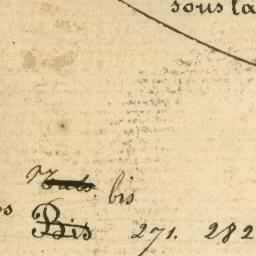 sous la
bis
Bis 271. 282